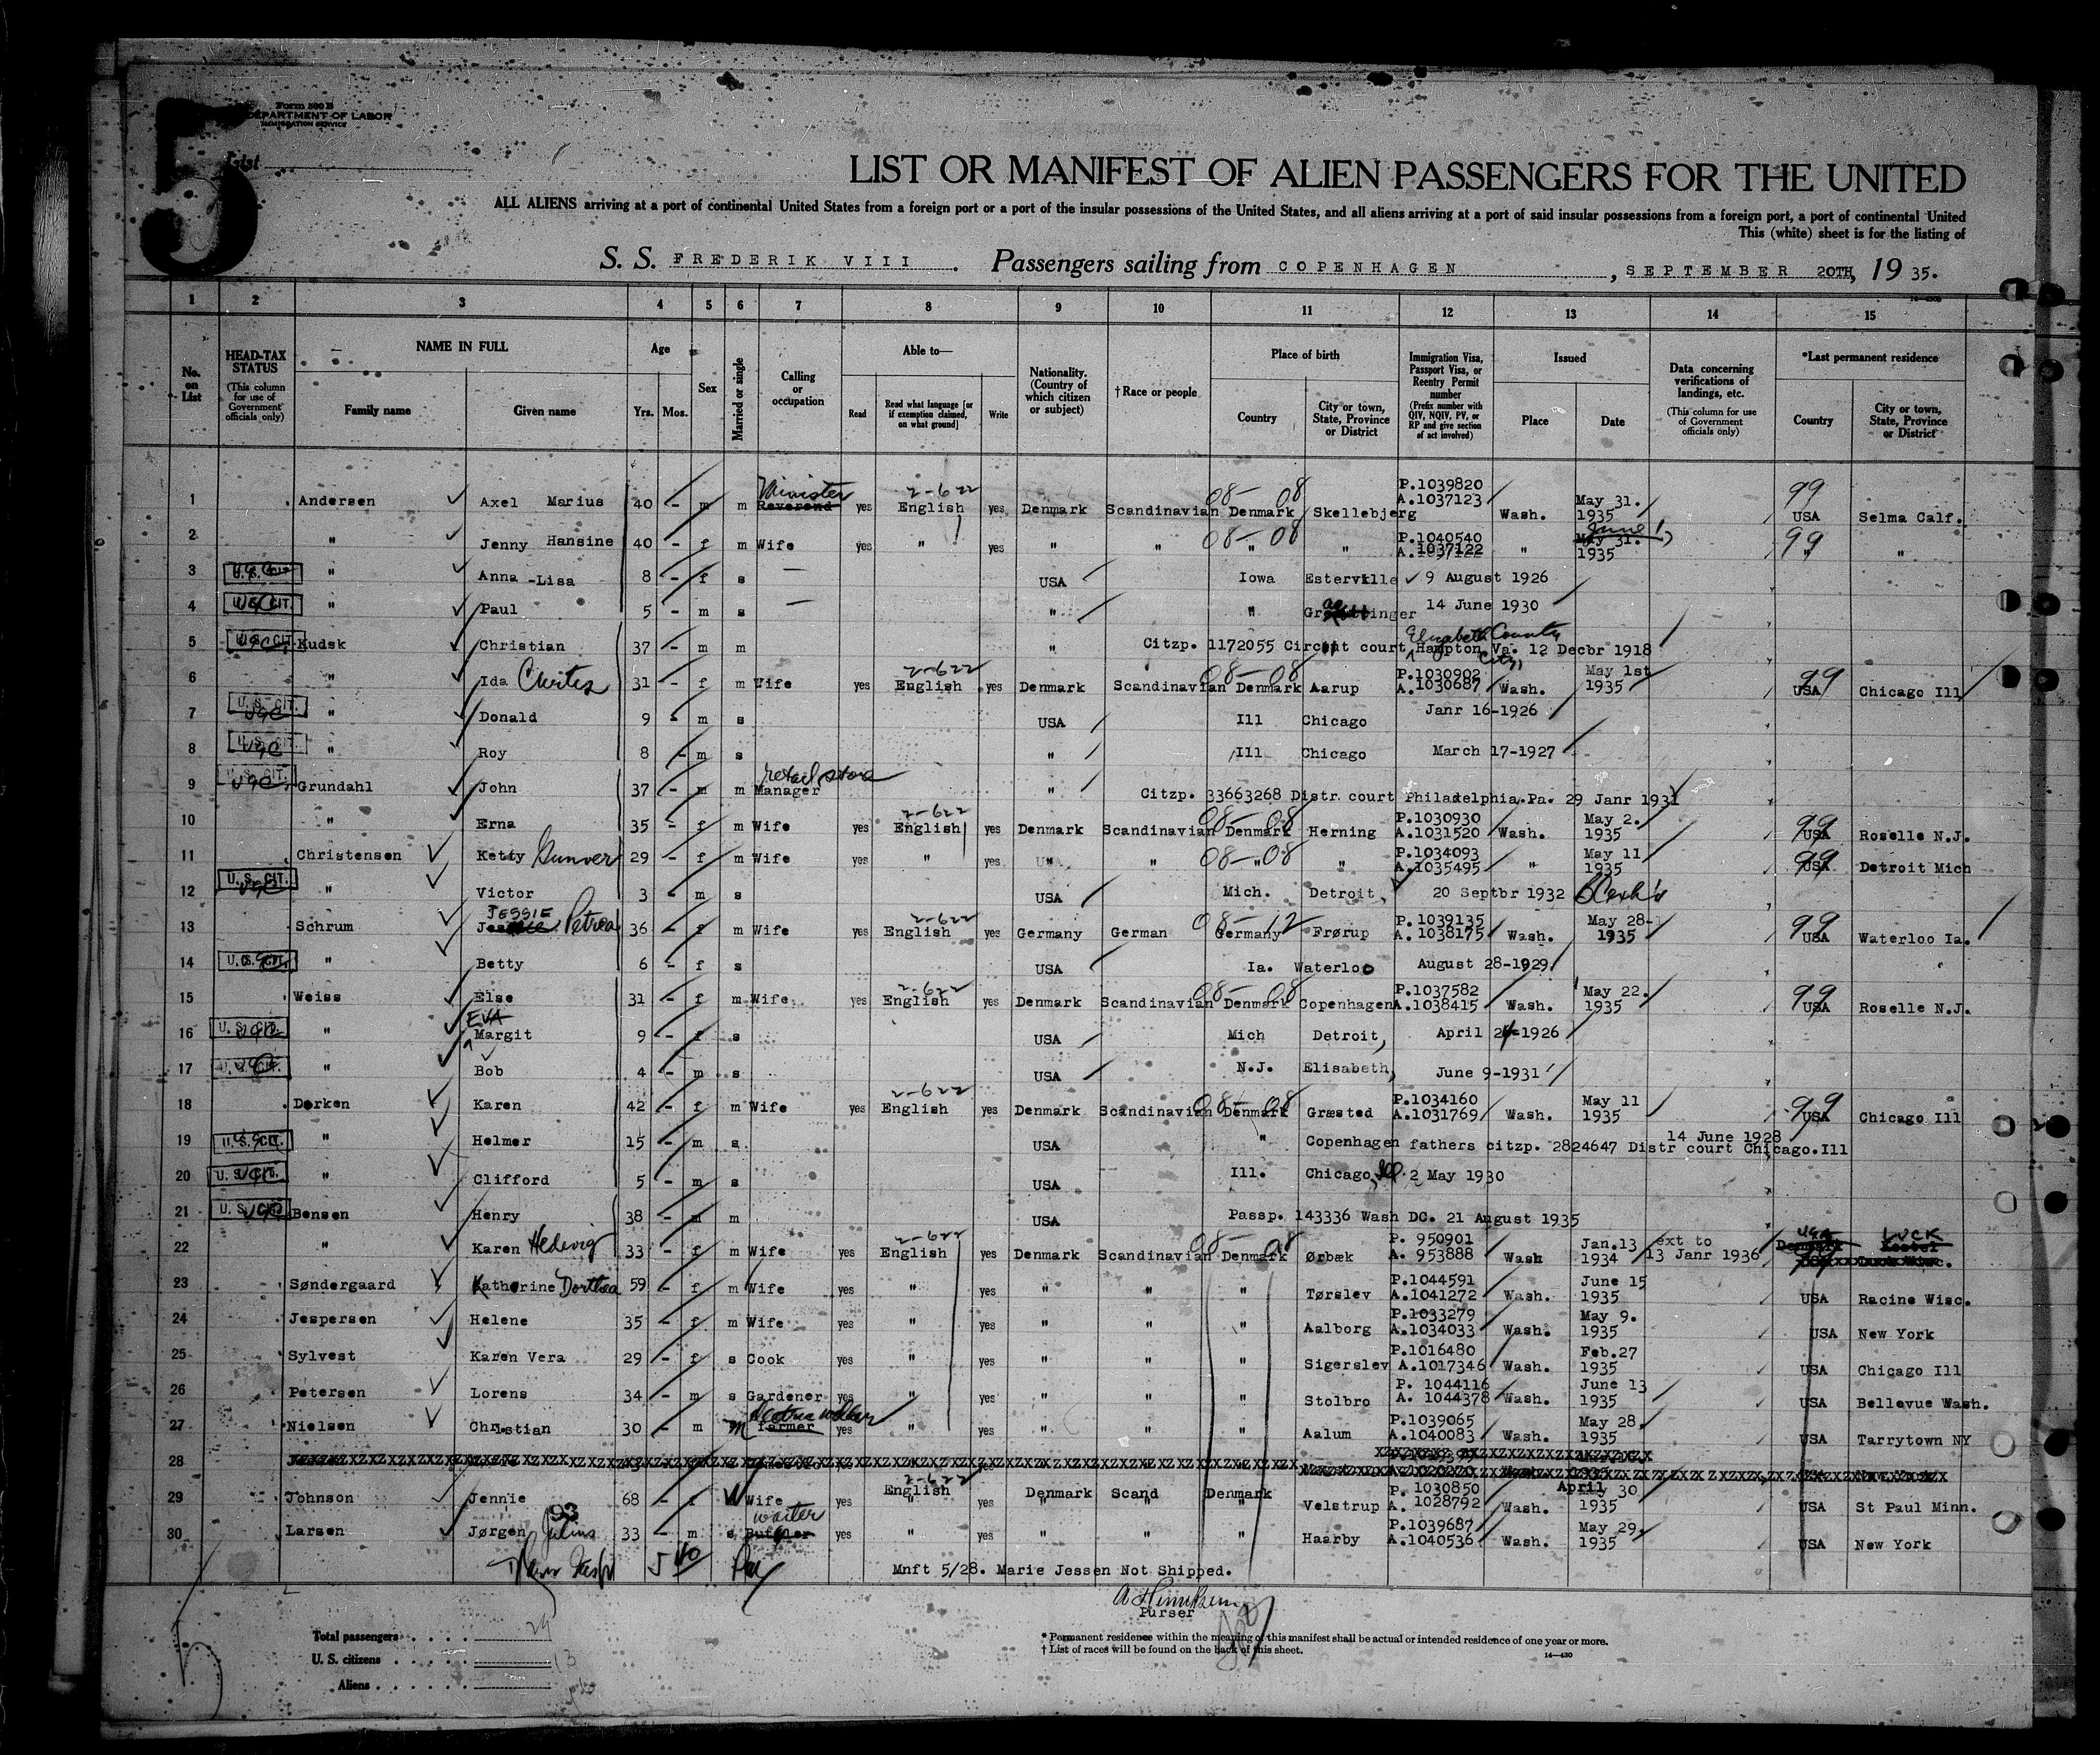 5
Form 500 B
DEPARTMENT OF LABOR
IMMIGRATION SERVICE
List
LIST OR MANIFEST OF ALIEN PASSENGERS FOR THE UNITED
ALL ALIENS arriving at a port of continental United States from a foreign port or a port of the insular possessions of the United States, and all aliens arriving at a port of said insular possessions from a foreign port, a port of continental United
This (white) sheet is for the listing of
S. S. FREDERIK VIII . Passengers sailing from COPENHAGEN , SEPTEMBER 20TH, 19 35.
1 2 3 4 5 6 7 8 9 10 11 12 13 14 15
No. on List
HEAD-TAX STATUS (This column for use of Government officials only)
NAME IN FULL Family name Given name
Age Yrs. Mos.
Sex
Married or single
Calling or occupation
Able to— Read Read what language [or if exemption claimed, on what ground] Write
Nationality. (Country of which citizen or subject)
† Race or people
Place of birth Country City or town, State, Province or District
Immigration Visa, Passport Visa, or Reentry Permit number (Prefix number with QIV, NQIV, PV, or RP and give section of act involved)
Issued Place Date
Data concerning verifications of landings, etc. (This column for use of Government officials only)
*Last permanent residence Country City or town, State, Province or District
1 Andersen Axel Marius 40 - m m Minister Reverend yes 2-622 English yes Denmark Scandinavian 08- 08 Denmark Skellebjerg P.1039820 A.1037123 Wash. May 31. 1935 99 USA Selma Calf.
2 " Jenny Hansine 40 - f m Wife yes " yes " " 08-08 " " P.1040540 A.1037122 " May 31. June 1, 1935 99 " "
3 U.S. CIT. " Anna -Lisa 8 - f s — USA Iowa Esterville 9 August 1926
4 U.S. CIT. " Paul 5 - m s — " " Graettinger 14 June 1930
5 U.S. CIT. Kudsk Christian 37 - m m " Citzp. 1172055 Circuit court Hampton Va. 12 Decbr 1918 Elizabeth County City,
6 " Ida 31 - f m Wife yes 2-622 English yes Denmark Scandinavian 08-08 Denmark Aarup P.1030902 A.1030687 Wash. May 1st 1935 99 USA Chicago Ill
7 U.S. CIT. " Donald 9 - m s USA Ill Chicago Janr 16-1926
8 U.S. CIT. " Roy 8 - m s " Ill Chicago March 17-1927
9 U.S. CIT. Grundahl John 37 - m m retail store Manager " Citzp. 33663268 Distr. court Philadelphia.Pa. 29 Janr 1931
10 " Erna 35 - f m Wife yes 2-622 English yes Denmark Scandinavian 08-08 Denmark Herning P.1030930 A.1031520 Wash. May 2. 1935 99 USA Roselle N.J.
11 Christensen Ketty Gunver 29 - f m Wife yes " yes " " 08-08 " " P.1034093 A.1035495 " May 11 1935 99 USA Detroit Mich
12 U.S. CIT. " Victor 3 - m s USA Mich. Detroit, 20 Septbr 1932
13 Schrum JESSIE Petrea 36 - f m Wife yes 2-622 English yes Germany German 08-12 Germany Frørup P.1039135 A.1038175 Wash. May 28- 1935 99 USA Waterloo Ia.
14 U.S. CIT. " Betty 6 - f s USA Ia. Waterloo August 28-1929
15 Weiss Else 31 - f m Wife. yes 2-622 English yes Denmark Scandinavian 08-08 Denmark Copenhagen P.1037582 A.1038415 Wash. May 22. 1935 99 USA Roselle N.J.
16 U.S. CIT. " EVA Margit 9 - f s USA Mich Detroit, April 24-1926
17 U.S. CIT. " Bob 4 - m s USA N.J. Elisabeth, June 9-1931
18 Derken Karen 42 - f m Wife yes 2-622 English yes Denmark Scandinavian 08-08 Denmark Græsted P.1034160 A.1031769 Wash. May 11 1935 99 USA Chicago Ill
19 U.S. CIT. " Helmer 15 - m s USA " Copenhagen fathers citzp. 2824647 Distr court Chicago.Ill 14 June 1928
20 U.S. CIT. " Clifford 5 - m s USA Ill. Chicago, Ill. 2 May 1930
21 U.S. CIT. Bensen Henry 38 - m m USA Passp. 143336 Wash DC. 21 August 1935
22 " Karen Hedevig 33 - f m Wife yes 2-622 English yes Denmark Scandinavian 08-08 Denmark Ørbæk P. 950901 A. 953888 Wash Jan.13 1934 ext to 13 Janr 1936 USA Denmark LUCK
23 Søndergaard Katherine Dorthea 59 - f m Wife yes " yes " " " Tørslev P.1044591 A.1041272 Wash. June 15 1935 USA Racine Wisc.
24 Jespersen Helene 35 - f m Wife yes " yes " " " Aalborg P.1033279 A.1034033 Wash. May 9. 1935 USA New York
25 Sylvest Karen Vera 29 - f s Cook yes " yes " " " Sigerslev P.1016480 A.1017346 Wash. Feb.27 1935 USA Chicago Ill
26 Petersen Lorens 34 - m s Gardener yes " yes " " " Stolbro P. 1044116 A. 1044378 Wash. June 13 1935 USA Bellevue Wash.
27 Nielsen Christian 30 - m m farmer yes " yes " " " Aalum P.1039065 A.1040083 Wash. May 28. 1935 USA Tarrytown NY
28
29 Johnson Jennie 68 - f W Wife yes 2-622 English " yes Denmark " Scand " Denmark " Velstrup P. 1030850 A. 1028792 Wash. April 30 1935 USA St Paul Minn.
30 Larsen Jørgen Julius 33 - m s waiter Buttler yes " yes " " " Haarby P.1039687 A.1040536 Wash. May 29. 1935 USA New York
93
Mnft 5/28. Marie Jessen Not Shipped.
Purser
Total passengers 29
U. S. citizens 13
Aliens
* Permanent residence within the meaning of this manifest shall be actual or intended residence of one year or more.
† List of races will be found on the back of this sheet.
14—430